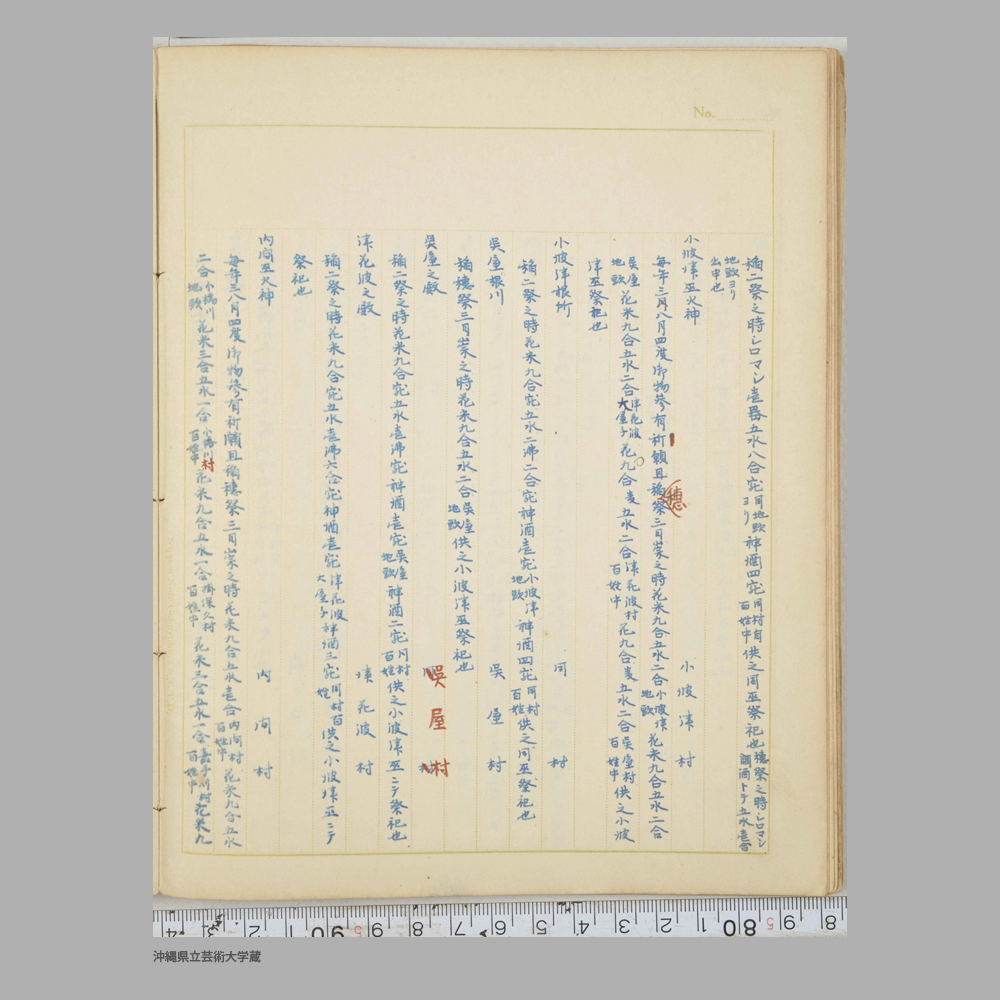 No.
稲二祭之時シロマシ壱器五水八合完同地頭ヨリ神酒四完同村自百姓中供之同巫祭祀也穂祭之時シロマシ調酒トテ五水壱合
地頭ヨリ出申也
小波津巫火神 小波津村
毎年三八月四度御物参有祈願且稲穂祭三日崇之時花米九合五水二合小波津地頭花米九合五水二合
呉屋地頭花米九合五水二合津花波大屋子花九合麦五水二合津花波村百姓中花九合麦五水二合呉屋村百姓中供之小波
津巫祭祀也
小波津根所 同村
稲二祭之時花米九合五水二沸二合完神酒壱完小波津地頭神酒四完同村百姓供之同巫祭祀也
呉屋根川 呉屋村
稲穂祭三日崇之時花米九合五水二合呉屋地頭供之小波津巫祭祀也
呉屋之殿 呉屋村
稲二祭之時花米九合完五水壱沸完神酒壱完呉屋地頭神酒二完同村百姓供之小波津巫ニテ祭祀也
津花波之殿 津花波村
稲二祭之時花米九合完五水壱沸六合完神酒壱完津花波大屋子神酒三完同村百姓供之小波津巫ニテ
祭祀也
内間巫火神 内間村
毎年三八月四度御物参有祈願且稲穂祭三日崇之時花米九合五水壱合内間村百姓中花米九合五水
二合小橋川地頭花米三合五水一合小橋川村百姓中花米九合五水一合掛保久村百姓中花米三合五水一合嘉手刈村百姓中花米九
沖縄県立芸術大学蔵